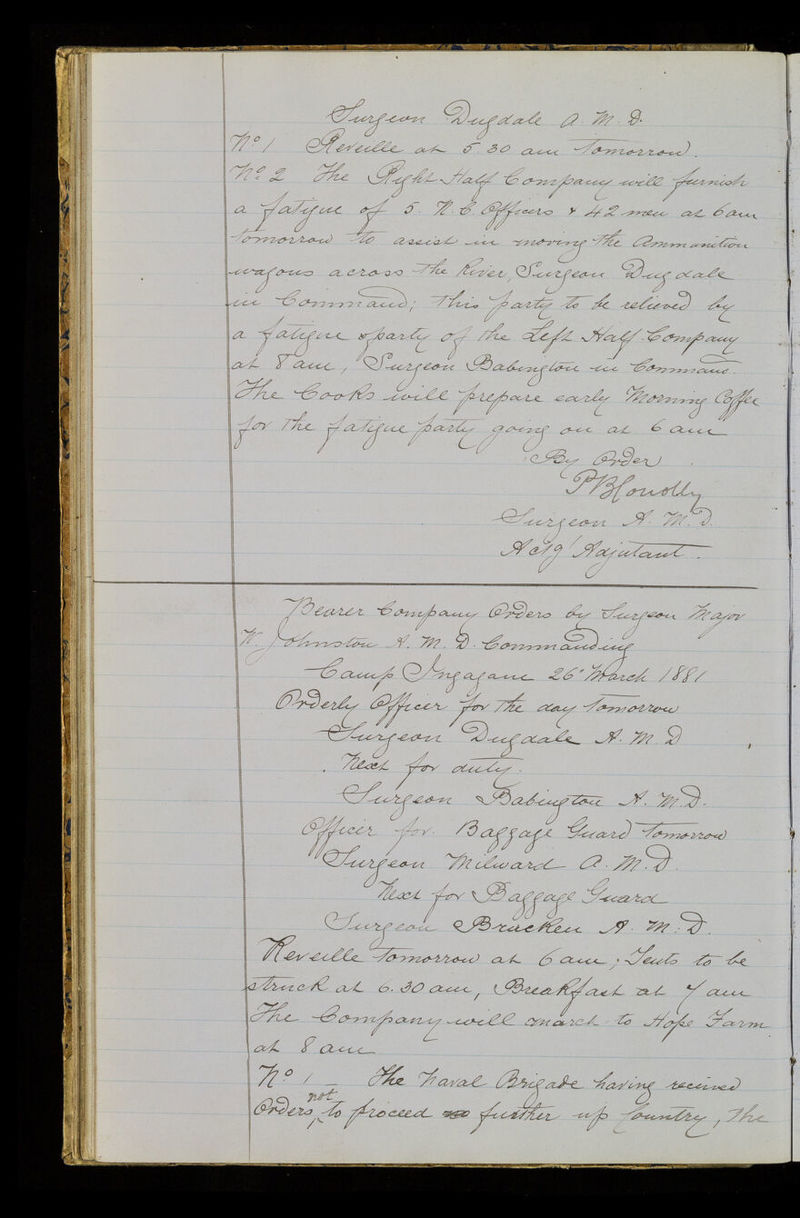 Surgeon Dugdale A. M. D.
No 1 Reveille at 5.30 am tomorrow.
No 2 The Right Half Company will furnish
a fatigue of 5. N. C. Officers & 42 men at 6 am
tomorrow to assist in moving the Ammunition
wagons across the River, Surgeon Dugdale
in Command; this party to be relieved by
a fatigue party of the Left Half Company
at 8 am, Surgeon Babington in Command.
The Cooks will prepare early Morning Coffee
for the fatigue party going on at 6 am
By Order
P B Conolly
Surgeon A. M. D.
Actg Adjutant.
Bearer Company Orders by Surgeon Major
W. Johnston A. M. D. Commanding
Camp Ingagane 26th March 1881
Orderly Officer for the day tomorrow
Surgeon Dugdale A. M. D
Next for duty.
Surgeon Babington A. M. D.
Officer for Baggage Guard tomorrow
Surgeon Milward A. M. D.
Next for Baggage Guard
Surgeon Brucken A. M. D.
Reveille tomorrow at 6 am; Tents to be
struck at 6.30 am, Breakfast at 7 am
The Company will march to Hope Farm
at 8 am
No 1 The Naval Brigade having received
Orders not to proceed further up Country, the